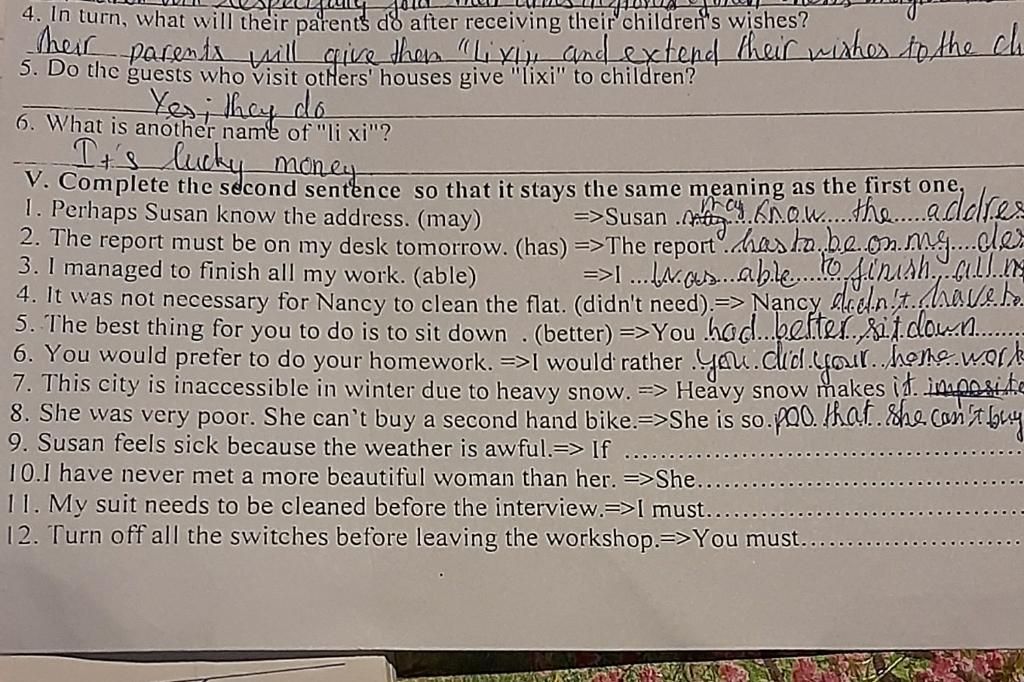 4. In turn, what will their parents do after receiving their children's wishes?
their parents will give them "lixi" and extend their wishes to the ch
5. Do the guests who visit others' houses give "lixi" to children?
Yes, they do
6. What is another name of "li xi"?
It's lucky money
V. Complete the second sentence so that it stays the same meaning as the first one.
1. Perhaps Susan know the address. (may) =>Susan may know the addres
2. The report must be on my desk tomorrow. (has) =>The report has to be on my des
3. I managed to finish all my work. (able) =>I was able to finish all m
4. It was not necessary for Nancy to clean the flat. (didn't need).=> Nancy didn't have to
5. The best thing for you to do is to sit down . (better) =>You had better sit down
6. You would prefer to do your homework. =>I would rather you did your home work
7. This city is inaccessible in winter due to heavy snow. => Heavy snow makes it
8. She was very poor. She can't buy a second hand bike.=>She is so poo that she can't buy
9. Susan feels sick because the weather is awful.=> If ........
10.I have never met a more beautiful woman than her. =>She........
11. My suit needs to be cleaned before the interview.=>I must........
12. Turn off all the switches before leaving the workshop.=>You must........